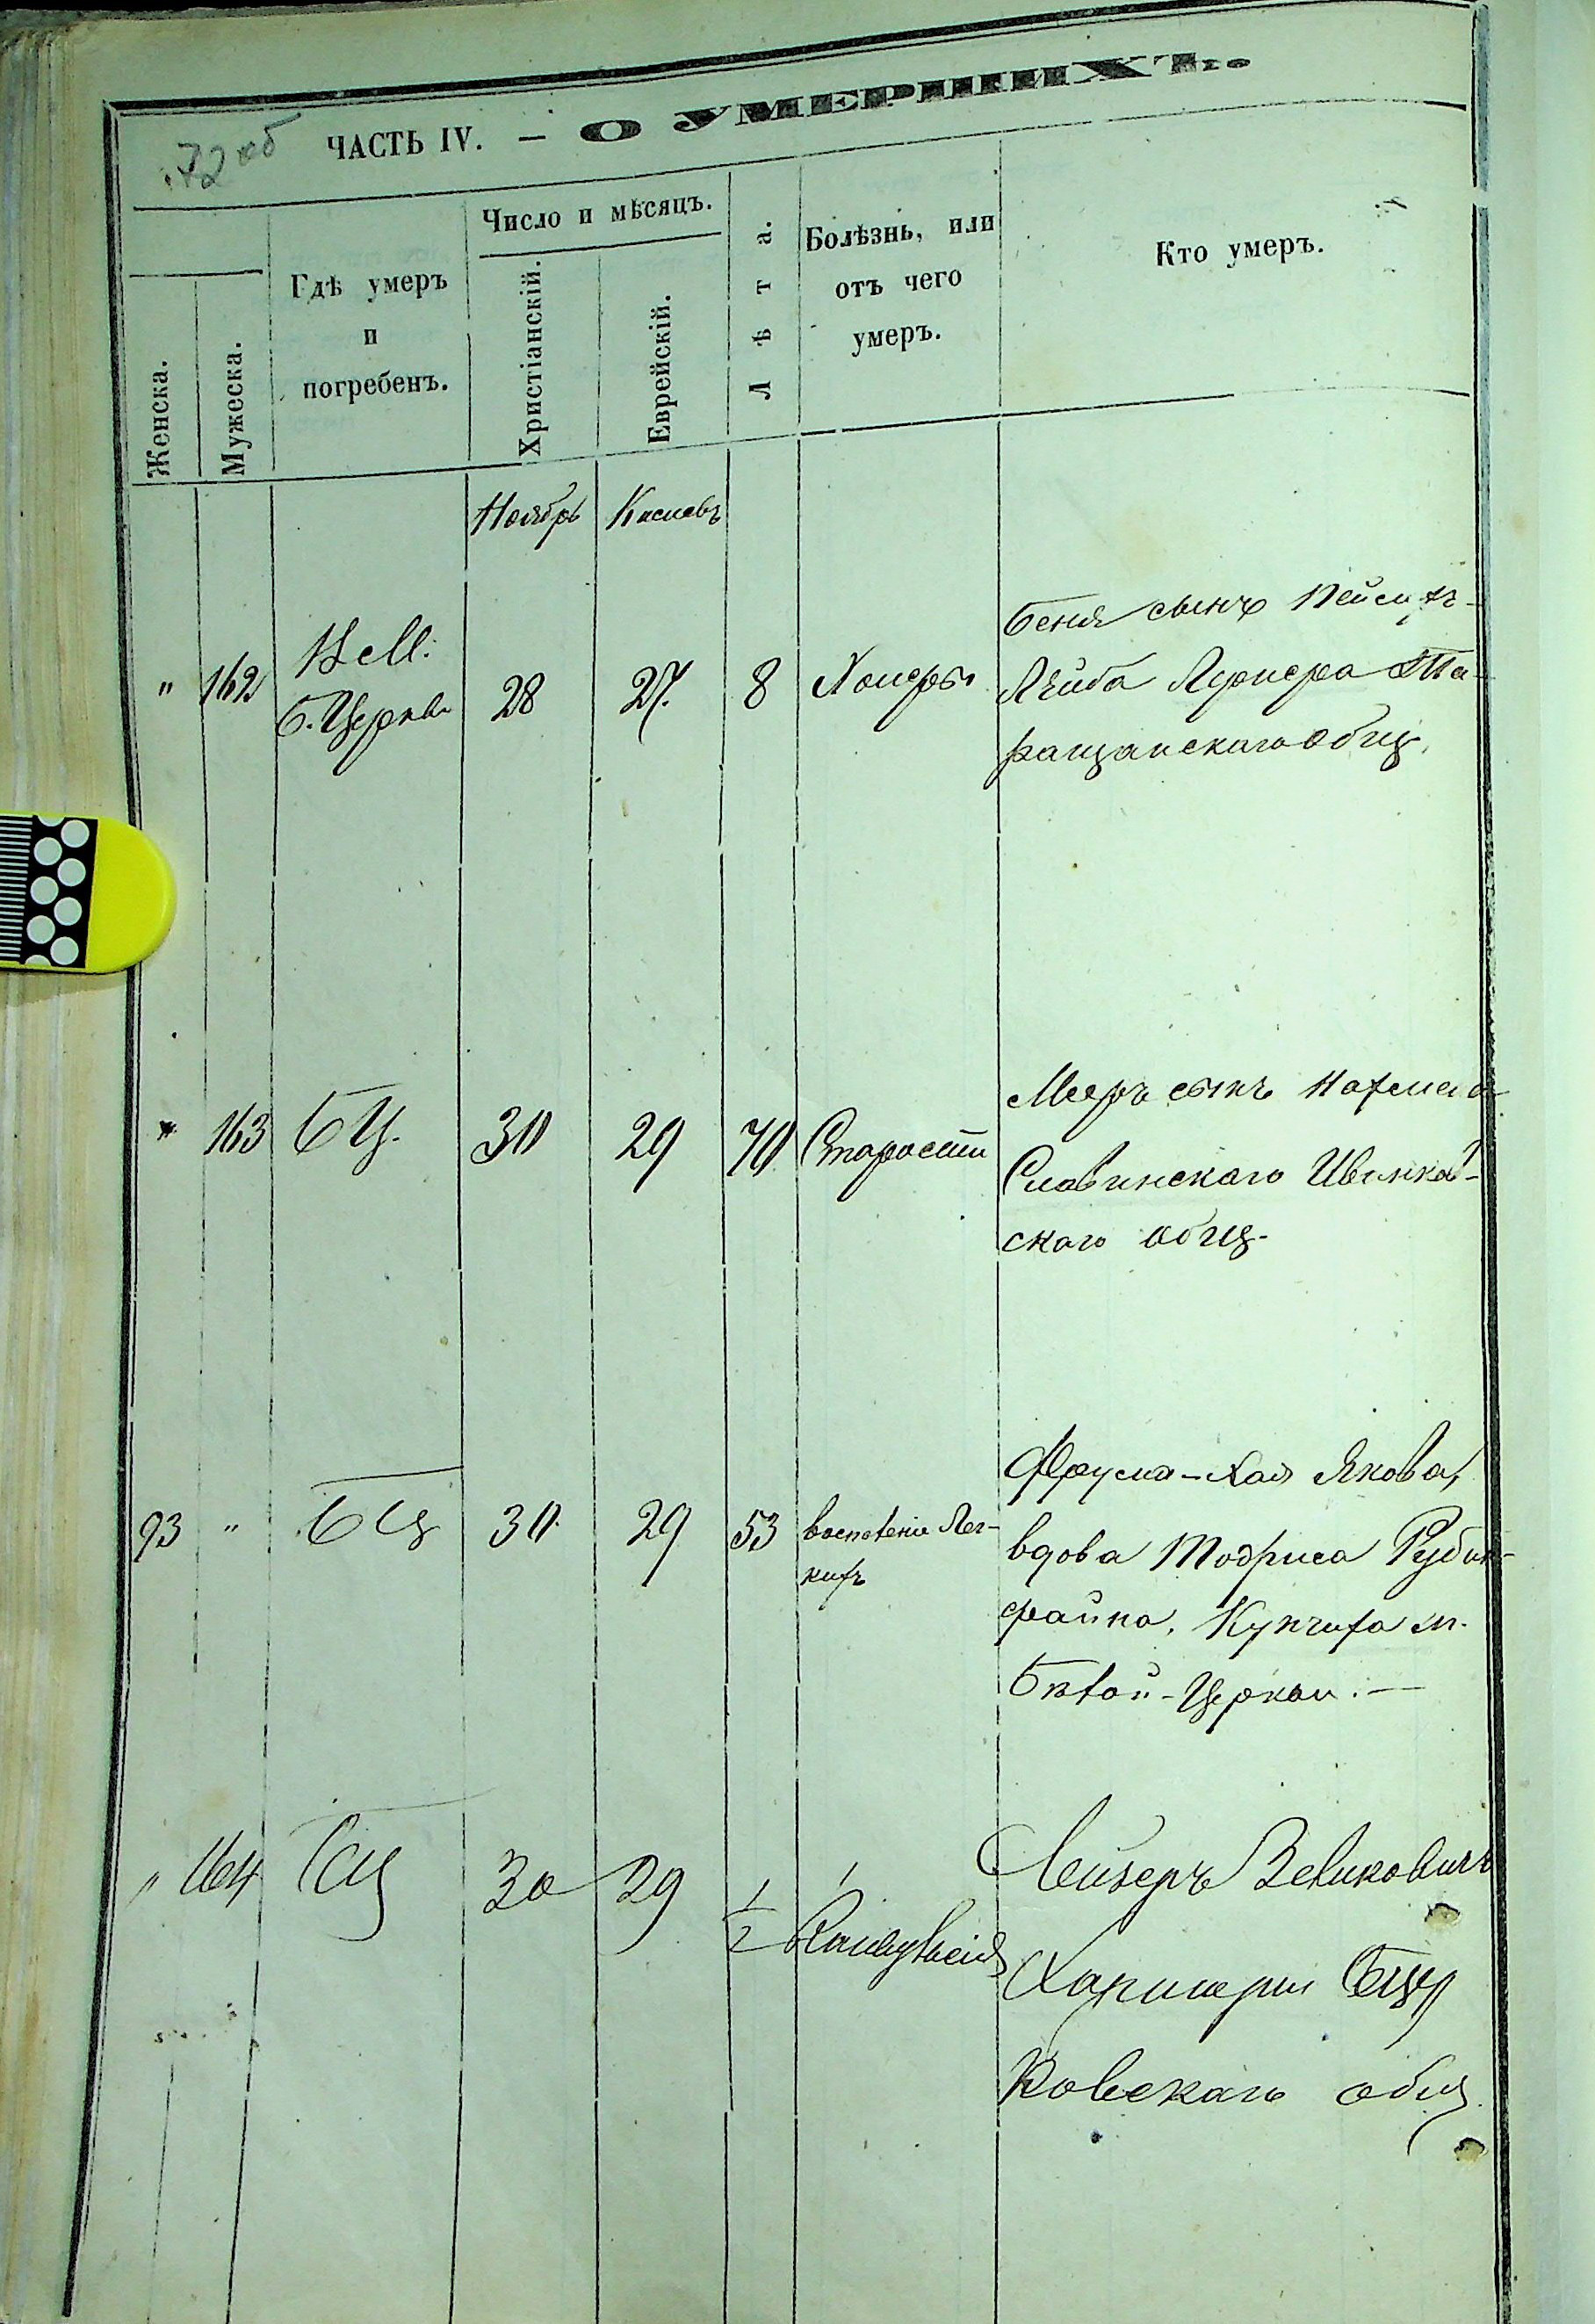 72 об
ЧАСТЬ IV. — О УМЕРШИХЪ.
Женска.
Мужеска.
Гдѣ умеръ
и
погребенъ.
Число и мѣсяцъ.
Христіанскій.
Еврейскій.
Лѣта.
Болѣзнь, или
отъ чего
умеръ.
Кто умеръ.
Ноябрь Кислевъ
" 162 В М. 28 27. 8 Холеры
Б. Церкви
Беня сынъ
Лейба Лернера Та-
ращанскаго общ.
" 163 БЦ. 30 29 70 Старости
Мееръ сынъ
Славинскаго
скаго общ-
93 " БЦ 30. 29 53 воспаленіе Лег-
кихъ
Фрума-Хая Якова,
вдова Тодриса Рубин-
файна, Купчиха м.
Бѣлой-Церкви. —
" 164 БЦ 30 29 1/2
Лейзеръ Зеликовичъ
Бцер
ковскаго общ